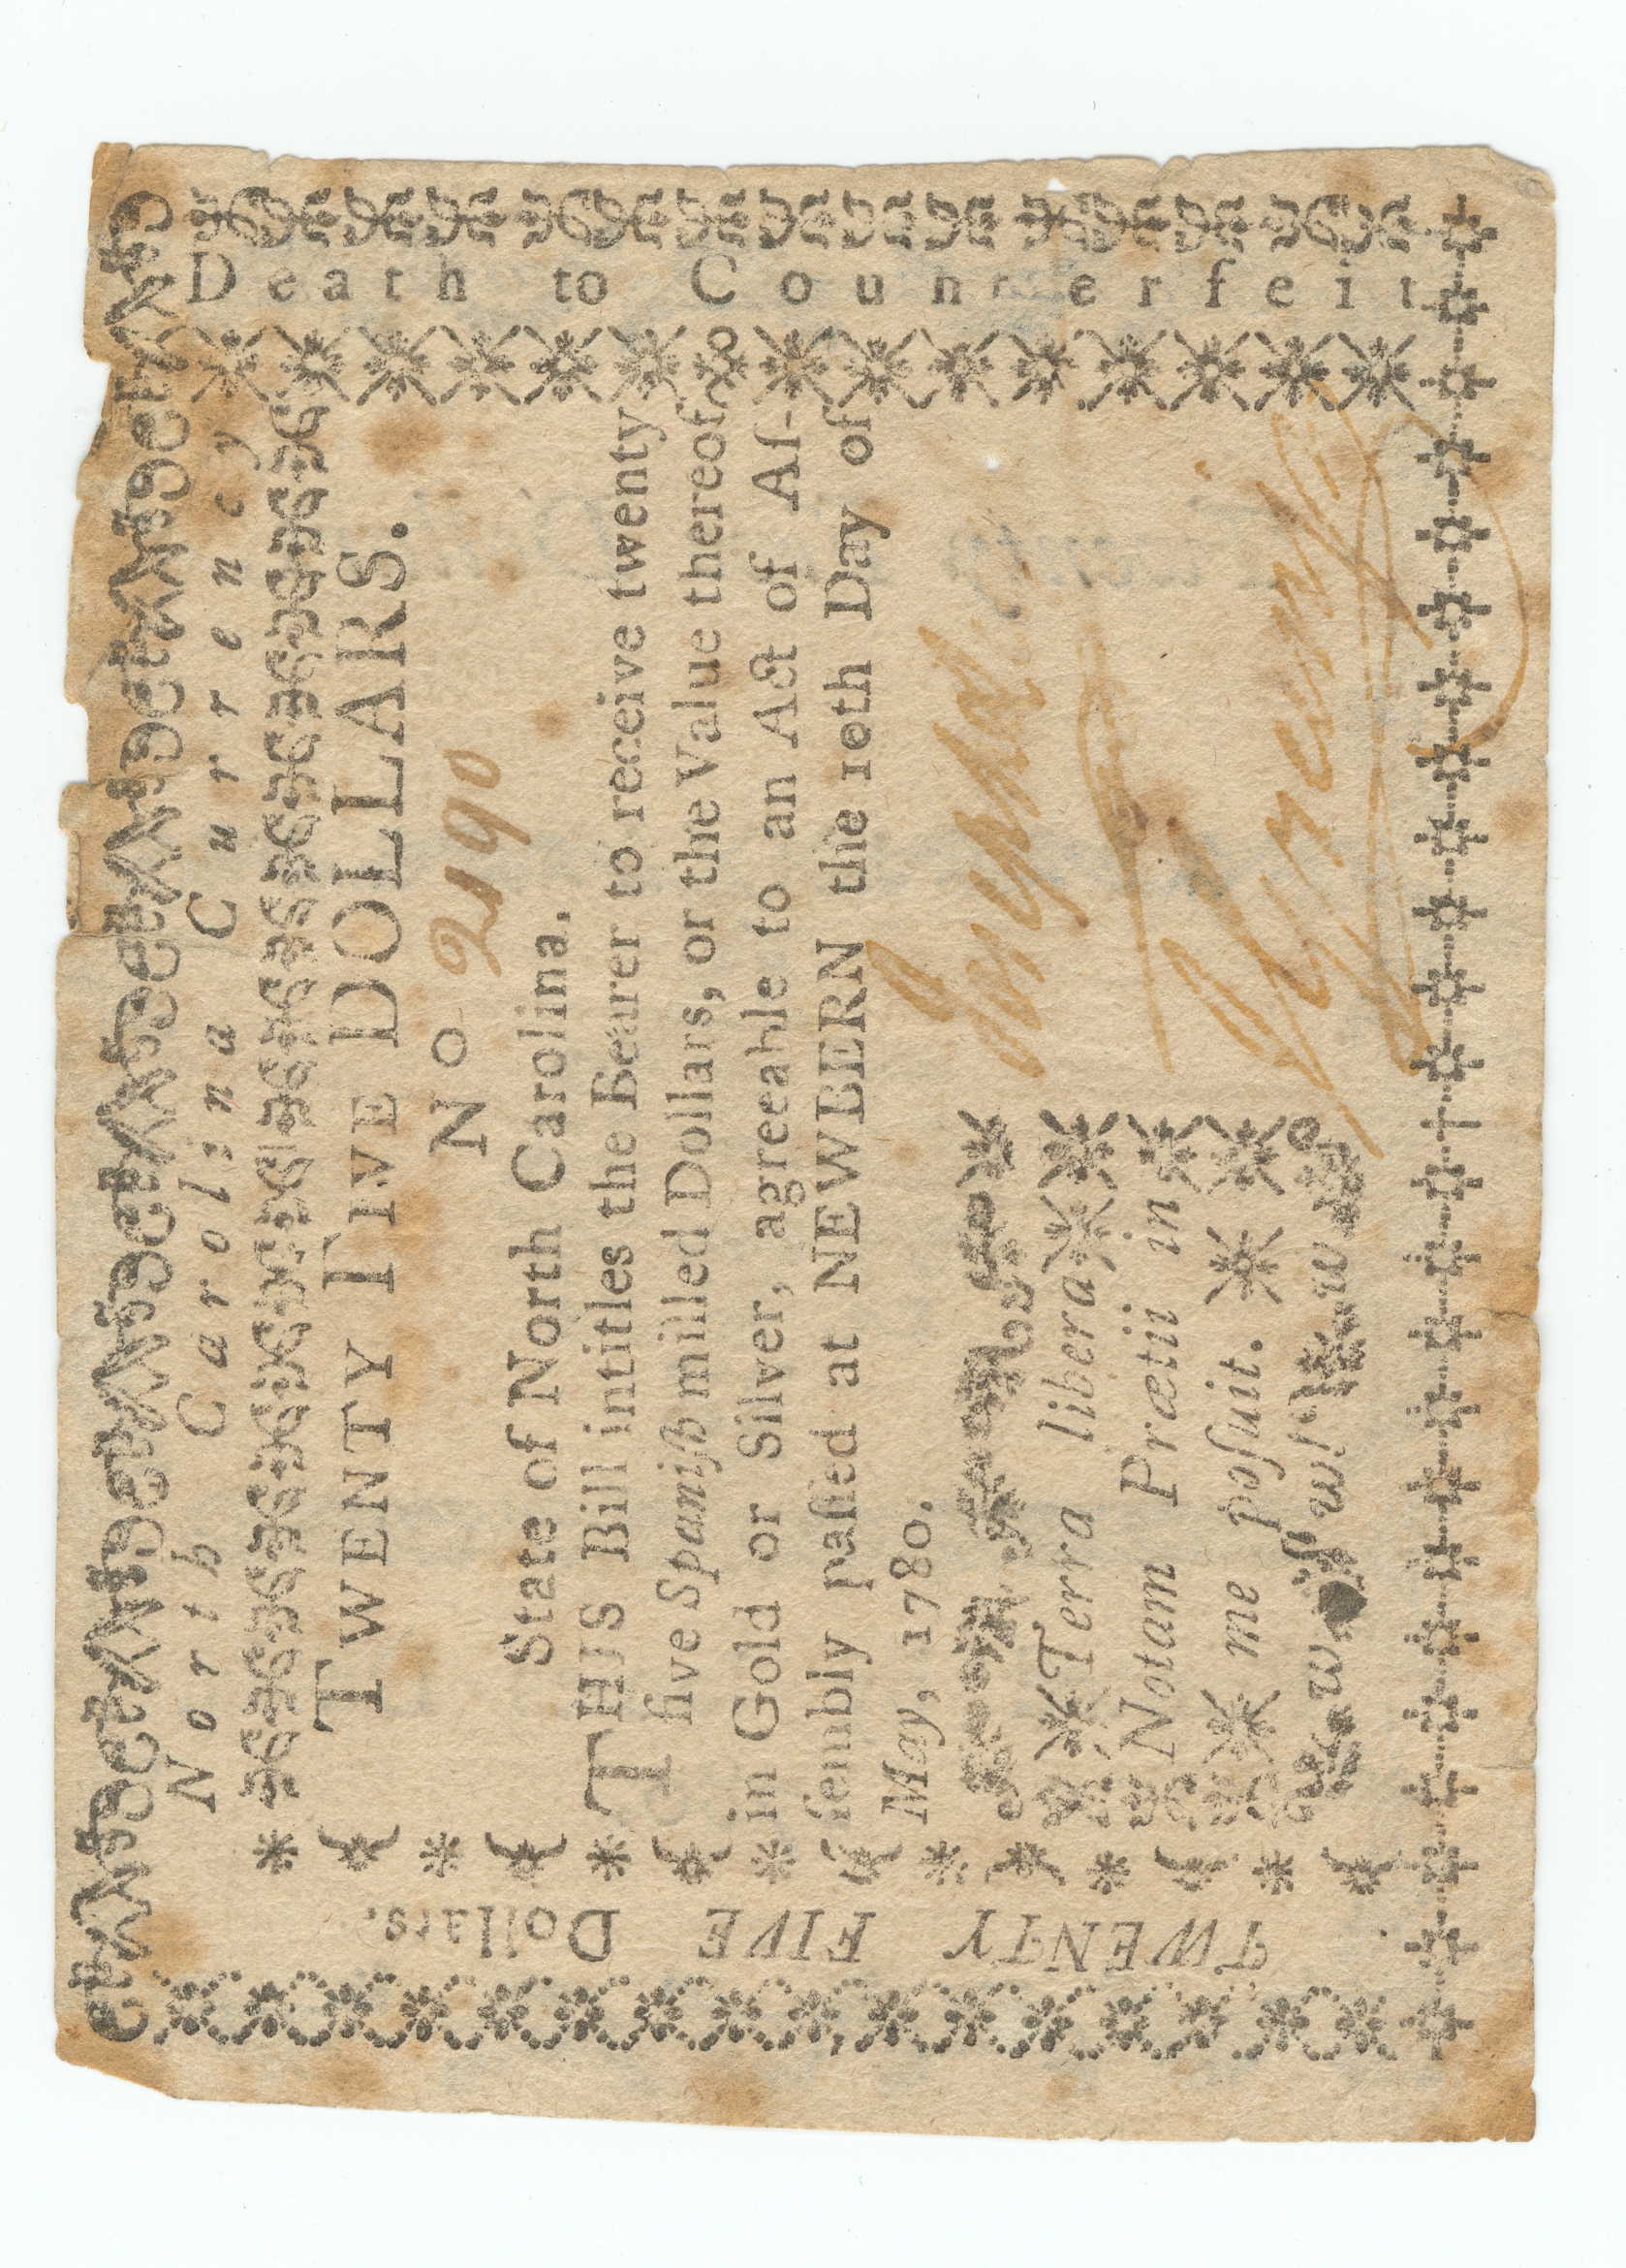 North Carolina Currency
TWENTY FIVE DOLLARS.
No 2490
State of North Carolina.
THIS Bill intitles the Bearer to receive twenty
five Spaniſh milled Dollars, or the Value thereof
in Gold or Silver, agreeable to an Act of Aſ-
ſembly paſſed at NEWBERN the 10th Day of
May, 1780.
Terra libera
Notam Prætii in
me poſuit.
Death to Counterfeit
TWENTY FIVE Dollars.